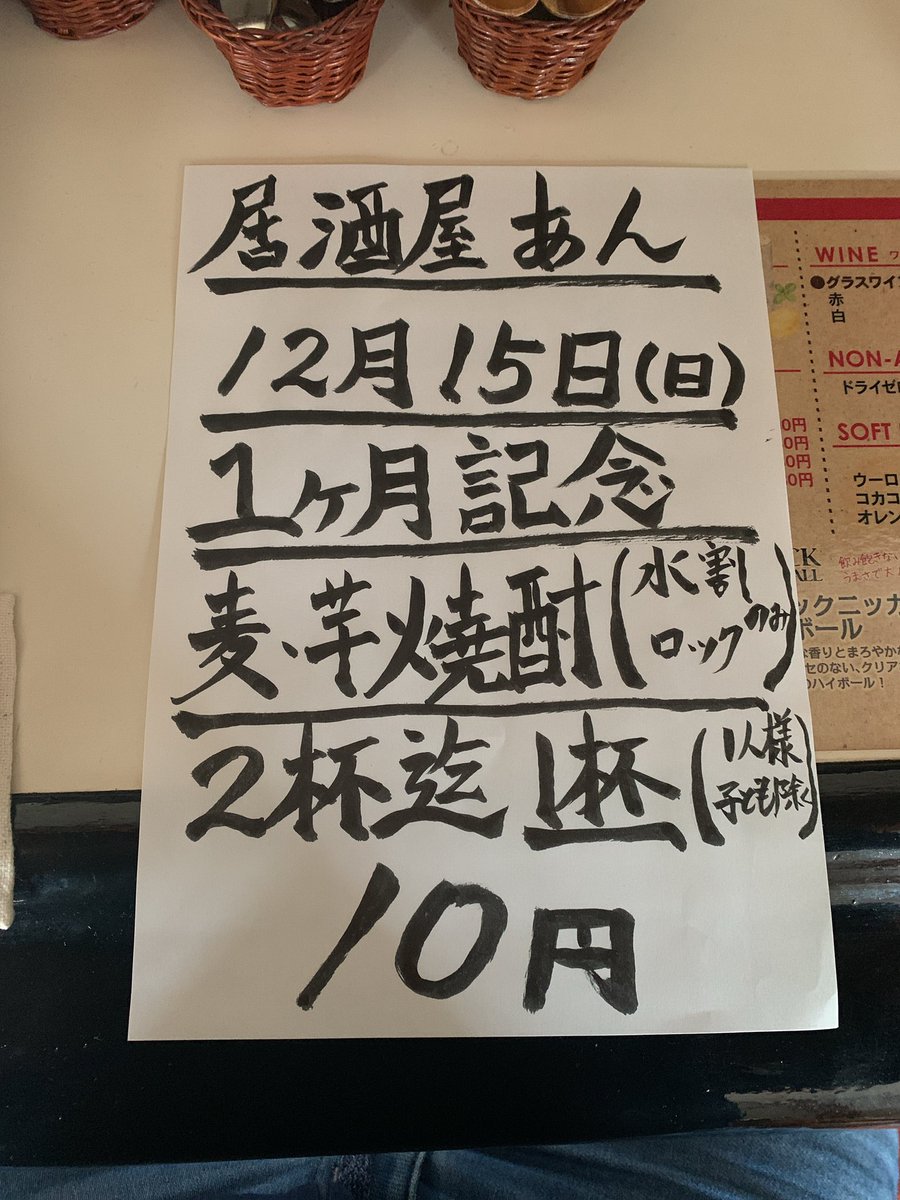 居酒屋 あん
12月15日(日)
1ヶ月記念
麦・芋焼酎(水割 ロックのみ)
2杯迄 1杯(1人様 子ども除く)
10円
WINE ワ
●グラスワイ
赤
白
NON-A
ドライゼ
SOFT
0円
0円
0円
0円
ウーロ
コカコ
オレン
飲み飽きない
うまさで大
ックニッカ
ボール
な香りとまろやかな
セのない、クリア
のハイボール!